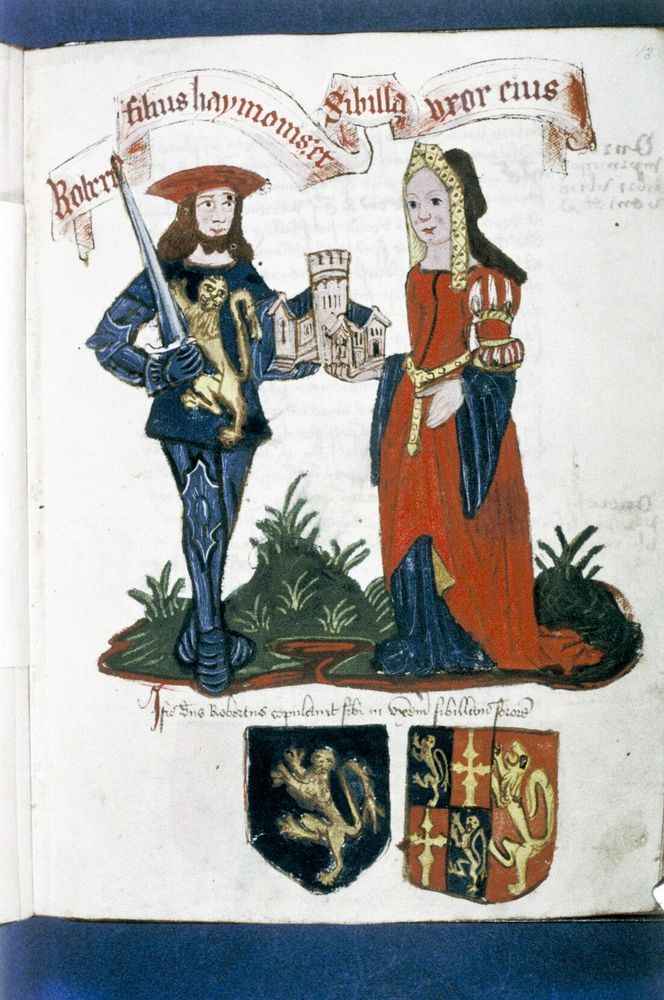 Robert filius haymonis et Sibilla uxor eius
Iste dns Robertus copulavit sibi in uxem sibillam sororē
13